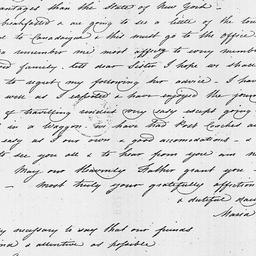 antages than the State of New York -
breakfasted & are going to see a little of the tow
to Canadaigua - this must go to the office
remember me most affecly to every membe
ed family, tell dear Sister I hope we shall
to regret my following her advice - I have
well as I expected & have enjoyed the journ
of travelling very easy except going
in a Waggon - we have had Post Coaches a
easy as our own & good accomodations - a
to see you all & to hear from you
May our Heavenly Father grant you
- most truly your gratefully affection
& dutiful dau
Maria
necessary to say that our friends
kind & attentive as possible